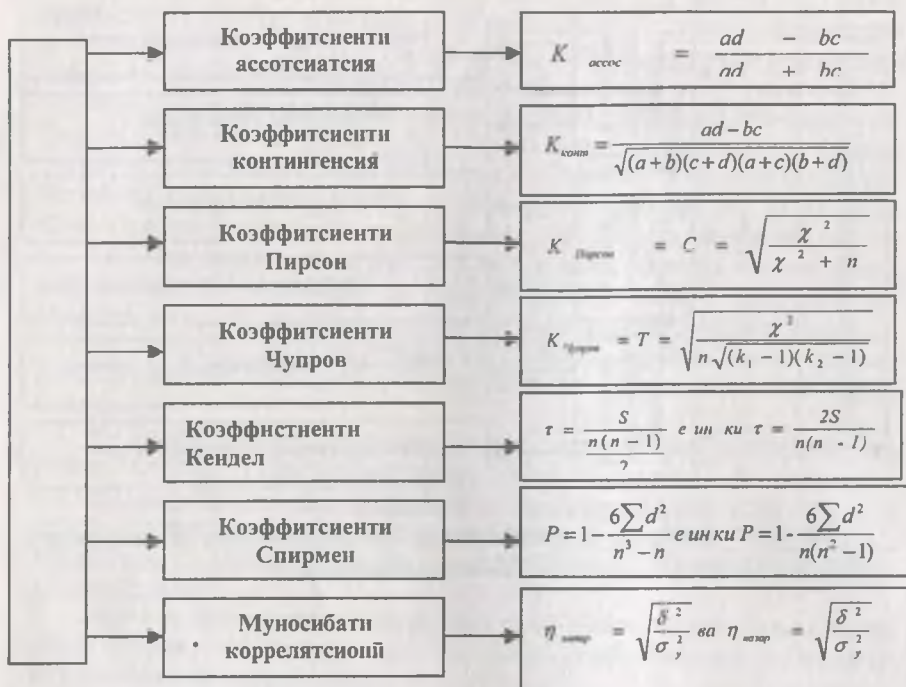 Коэффитсиенти
ассотсиатсия
K ассос = ad - bc / ad + bc
Коэффитсиенти
контингенсия
K конт = ad - bc / √(a+b)(c+d)(a+c)(b+d)
Коэффитсиенти
Пирсон
K Пирсон = C = √ χ² / χ² + n
Коэффитсиенти
Чупров
K = T = √ χ² / n√(k₁ - 1)(k₂ - 1)
Коэффнстненти
Кендел
τ = S / n(n - 1) / 2 е ин ки τ = 2S / n(n - 1)
Коэффитсиенти
Спирмен
P = 1 - 6∑d² / n³ - n е ин ки P = 1 - 6∑d² / n(n² - 1)
Муносибати
коррелятсионӣ
η = √ δ² / σ²у ва η = √ δ² / σ²у